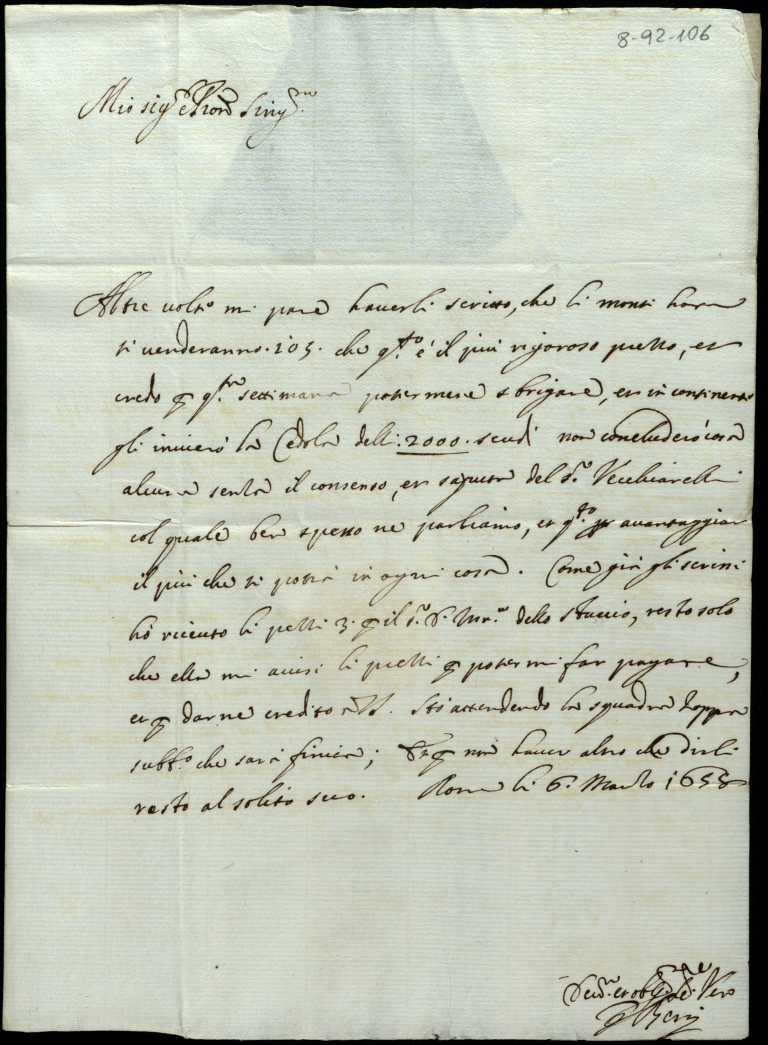 8-92-106
Mio sig.re e Pron Sing.mo
Altre volte mi pare haverli scritto, che li monti hora
si venderanno. 105. che q.to é il piu rigoroso prezzo, et
credo p q.ta settimana potermene sbrigare, et in continente
gli inviero la Cedola delli. 2000. scudi non concluderó cosa
alcuna senza il consenso, et saputa del S.r Vecchiarelli
col quale ben spesso ne parliamo, et q.to avantaggiar
il piu che si potrá in ogni cosa. Come giá gli scrissi
hó ricevuto li pezzi 3. p il S.r dello stuccio, resto solo
che ella mi avisi li prezzi p potermi far pagare,
et p darne credito Sto attendendo la squadra zoppa
subb.o che sará finita; p non haver altro che dirli
resto al solito suo. Roma li 6. Marzo 1655
Vero